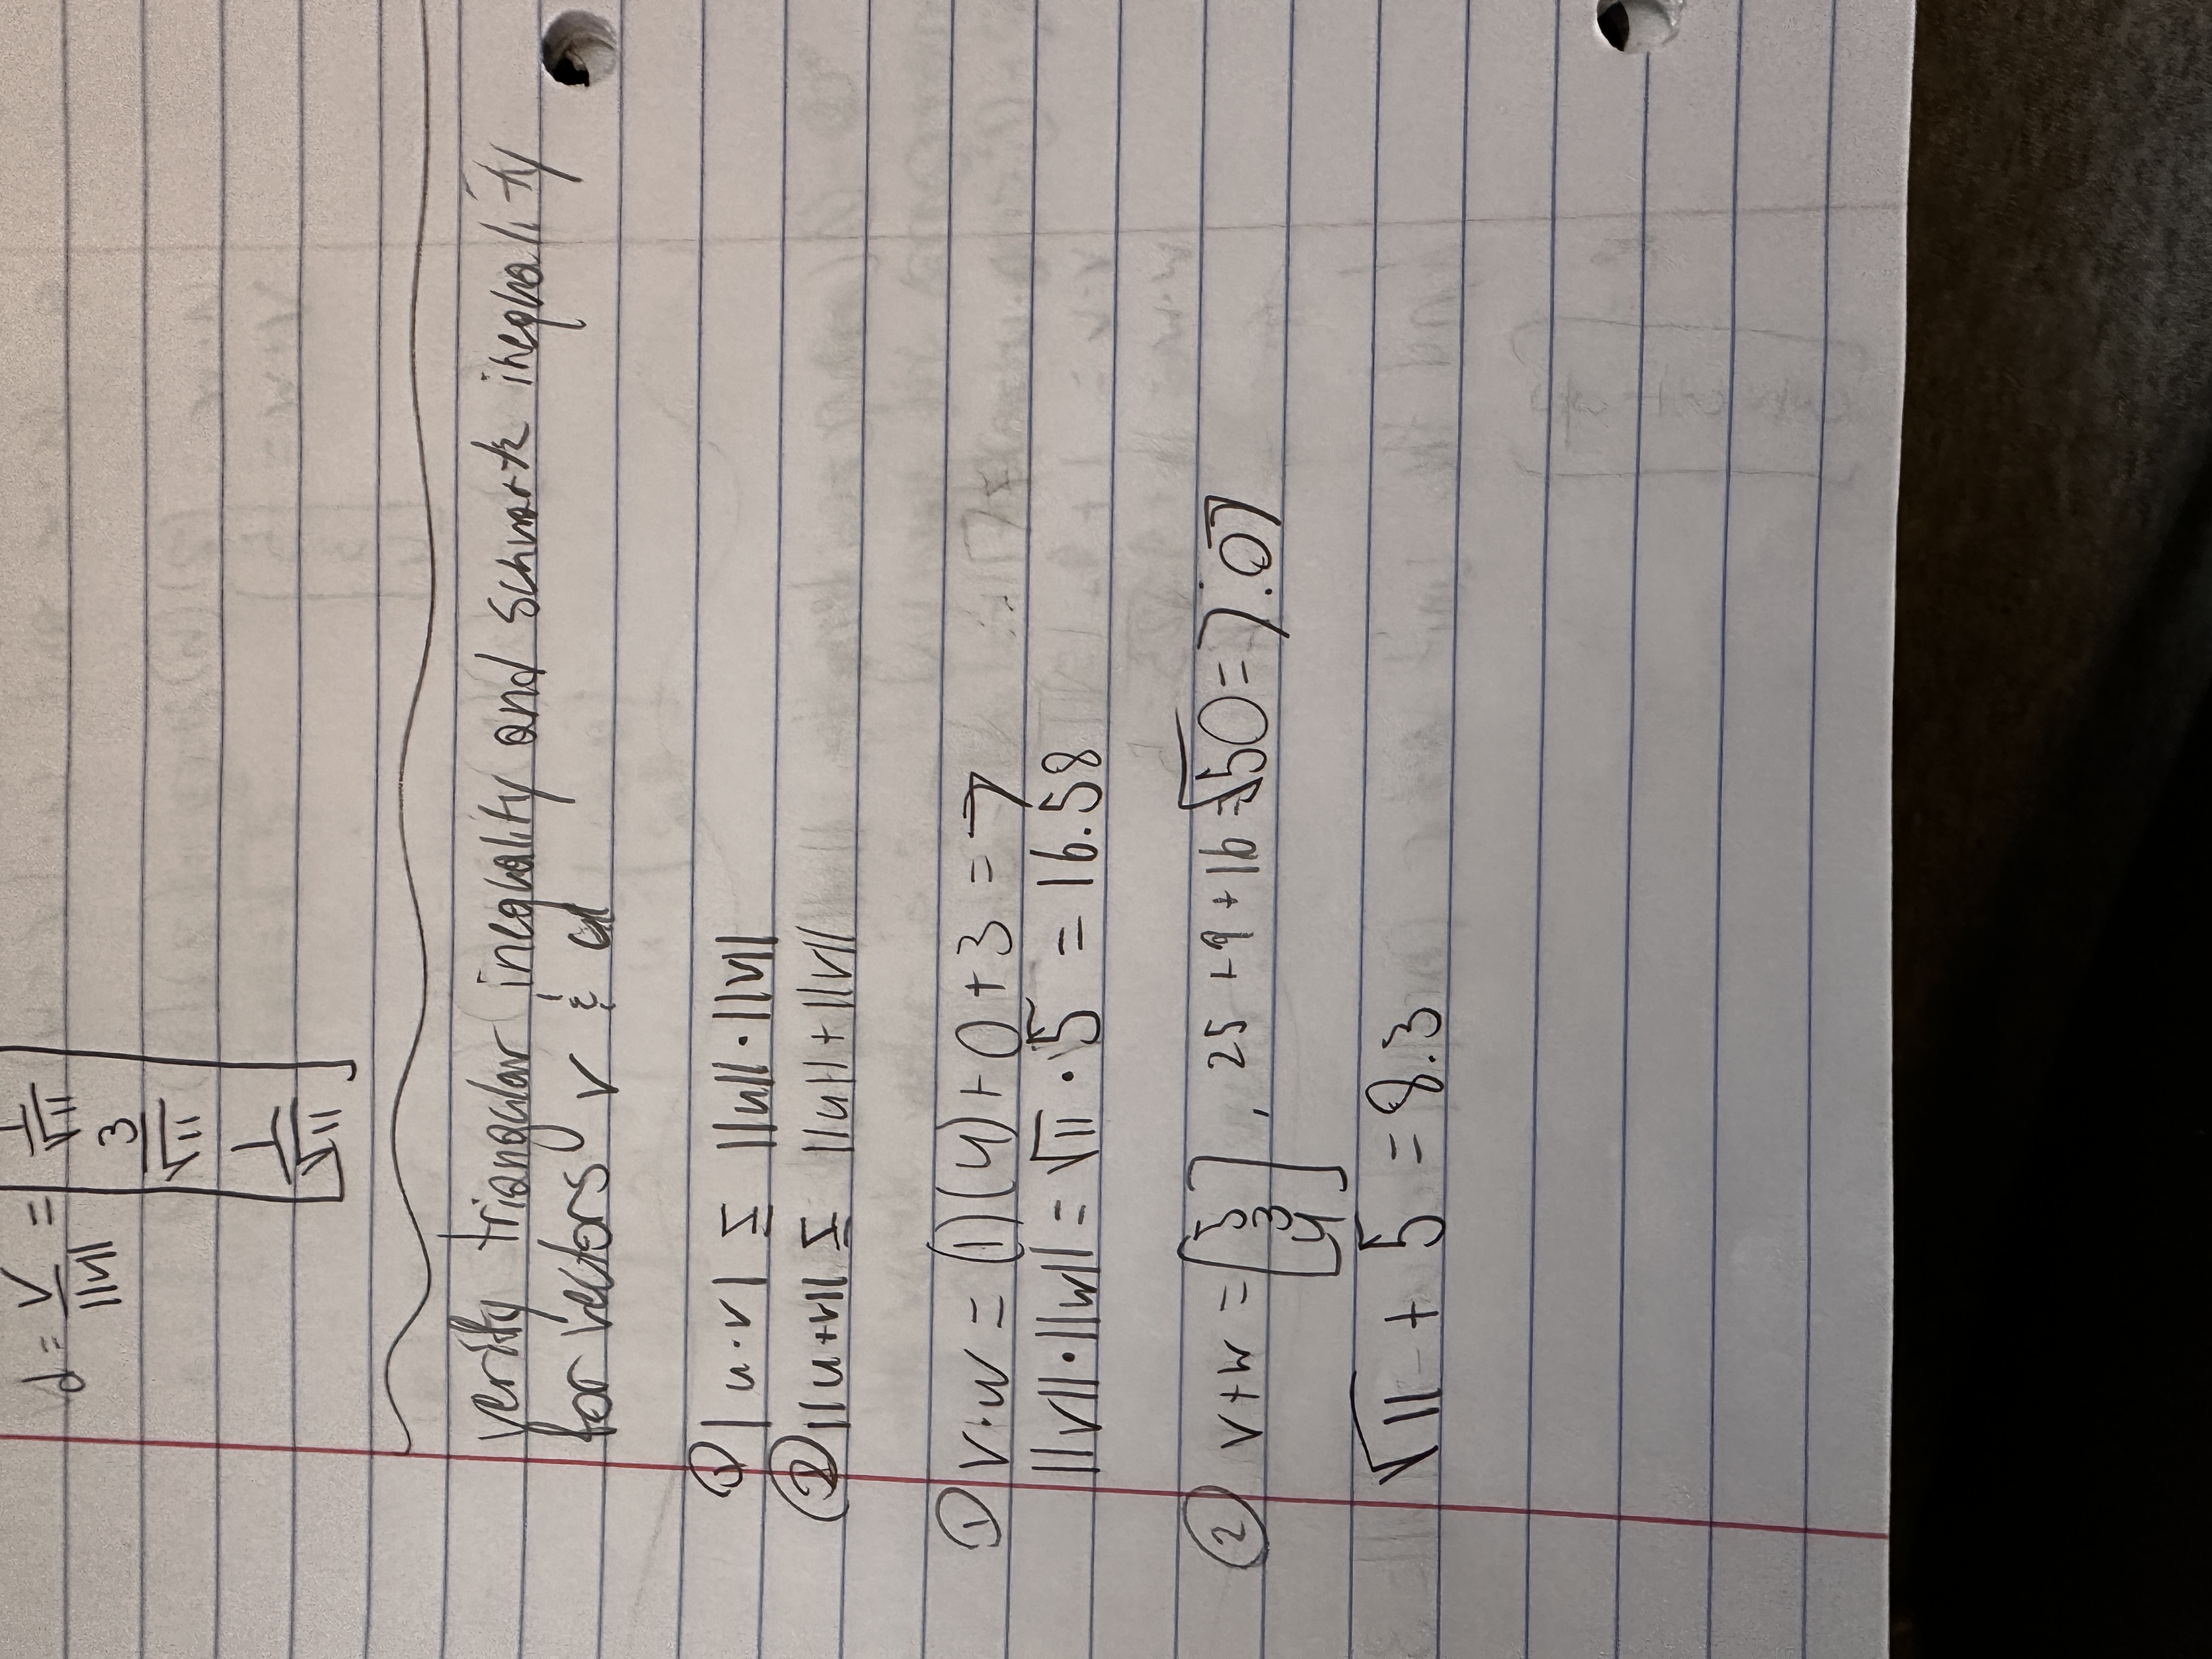 d = v/||v|| = [1/√11
3/√11
1/√11]
verify triangular inequality and schwartz inequality
for vectors v & u
① |u·v| ≤ ||u||·||v||
② ||u+v|| ≤ ||u||+||v||
① v·w = (1)(4)+0+3 = 7
||v||·||w|| = √11 · 5 = 16.58
② v+w = [5 3 4], 25+9+16 = √50 = 7.07
√11 + 5 = 8.3